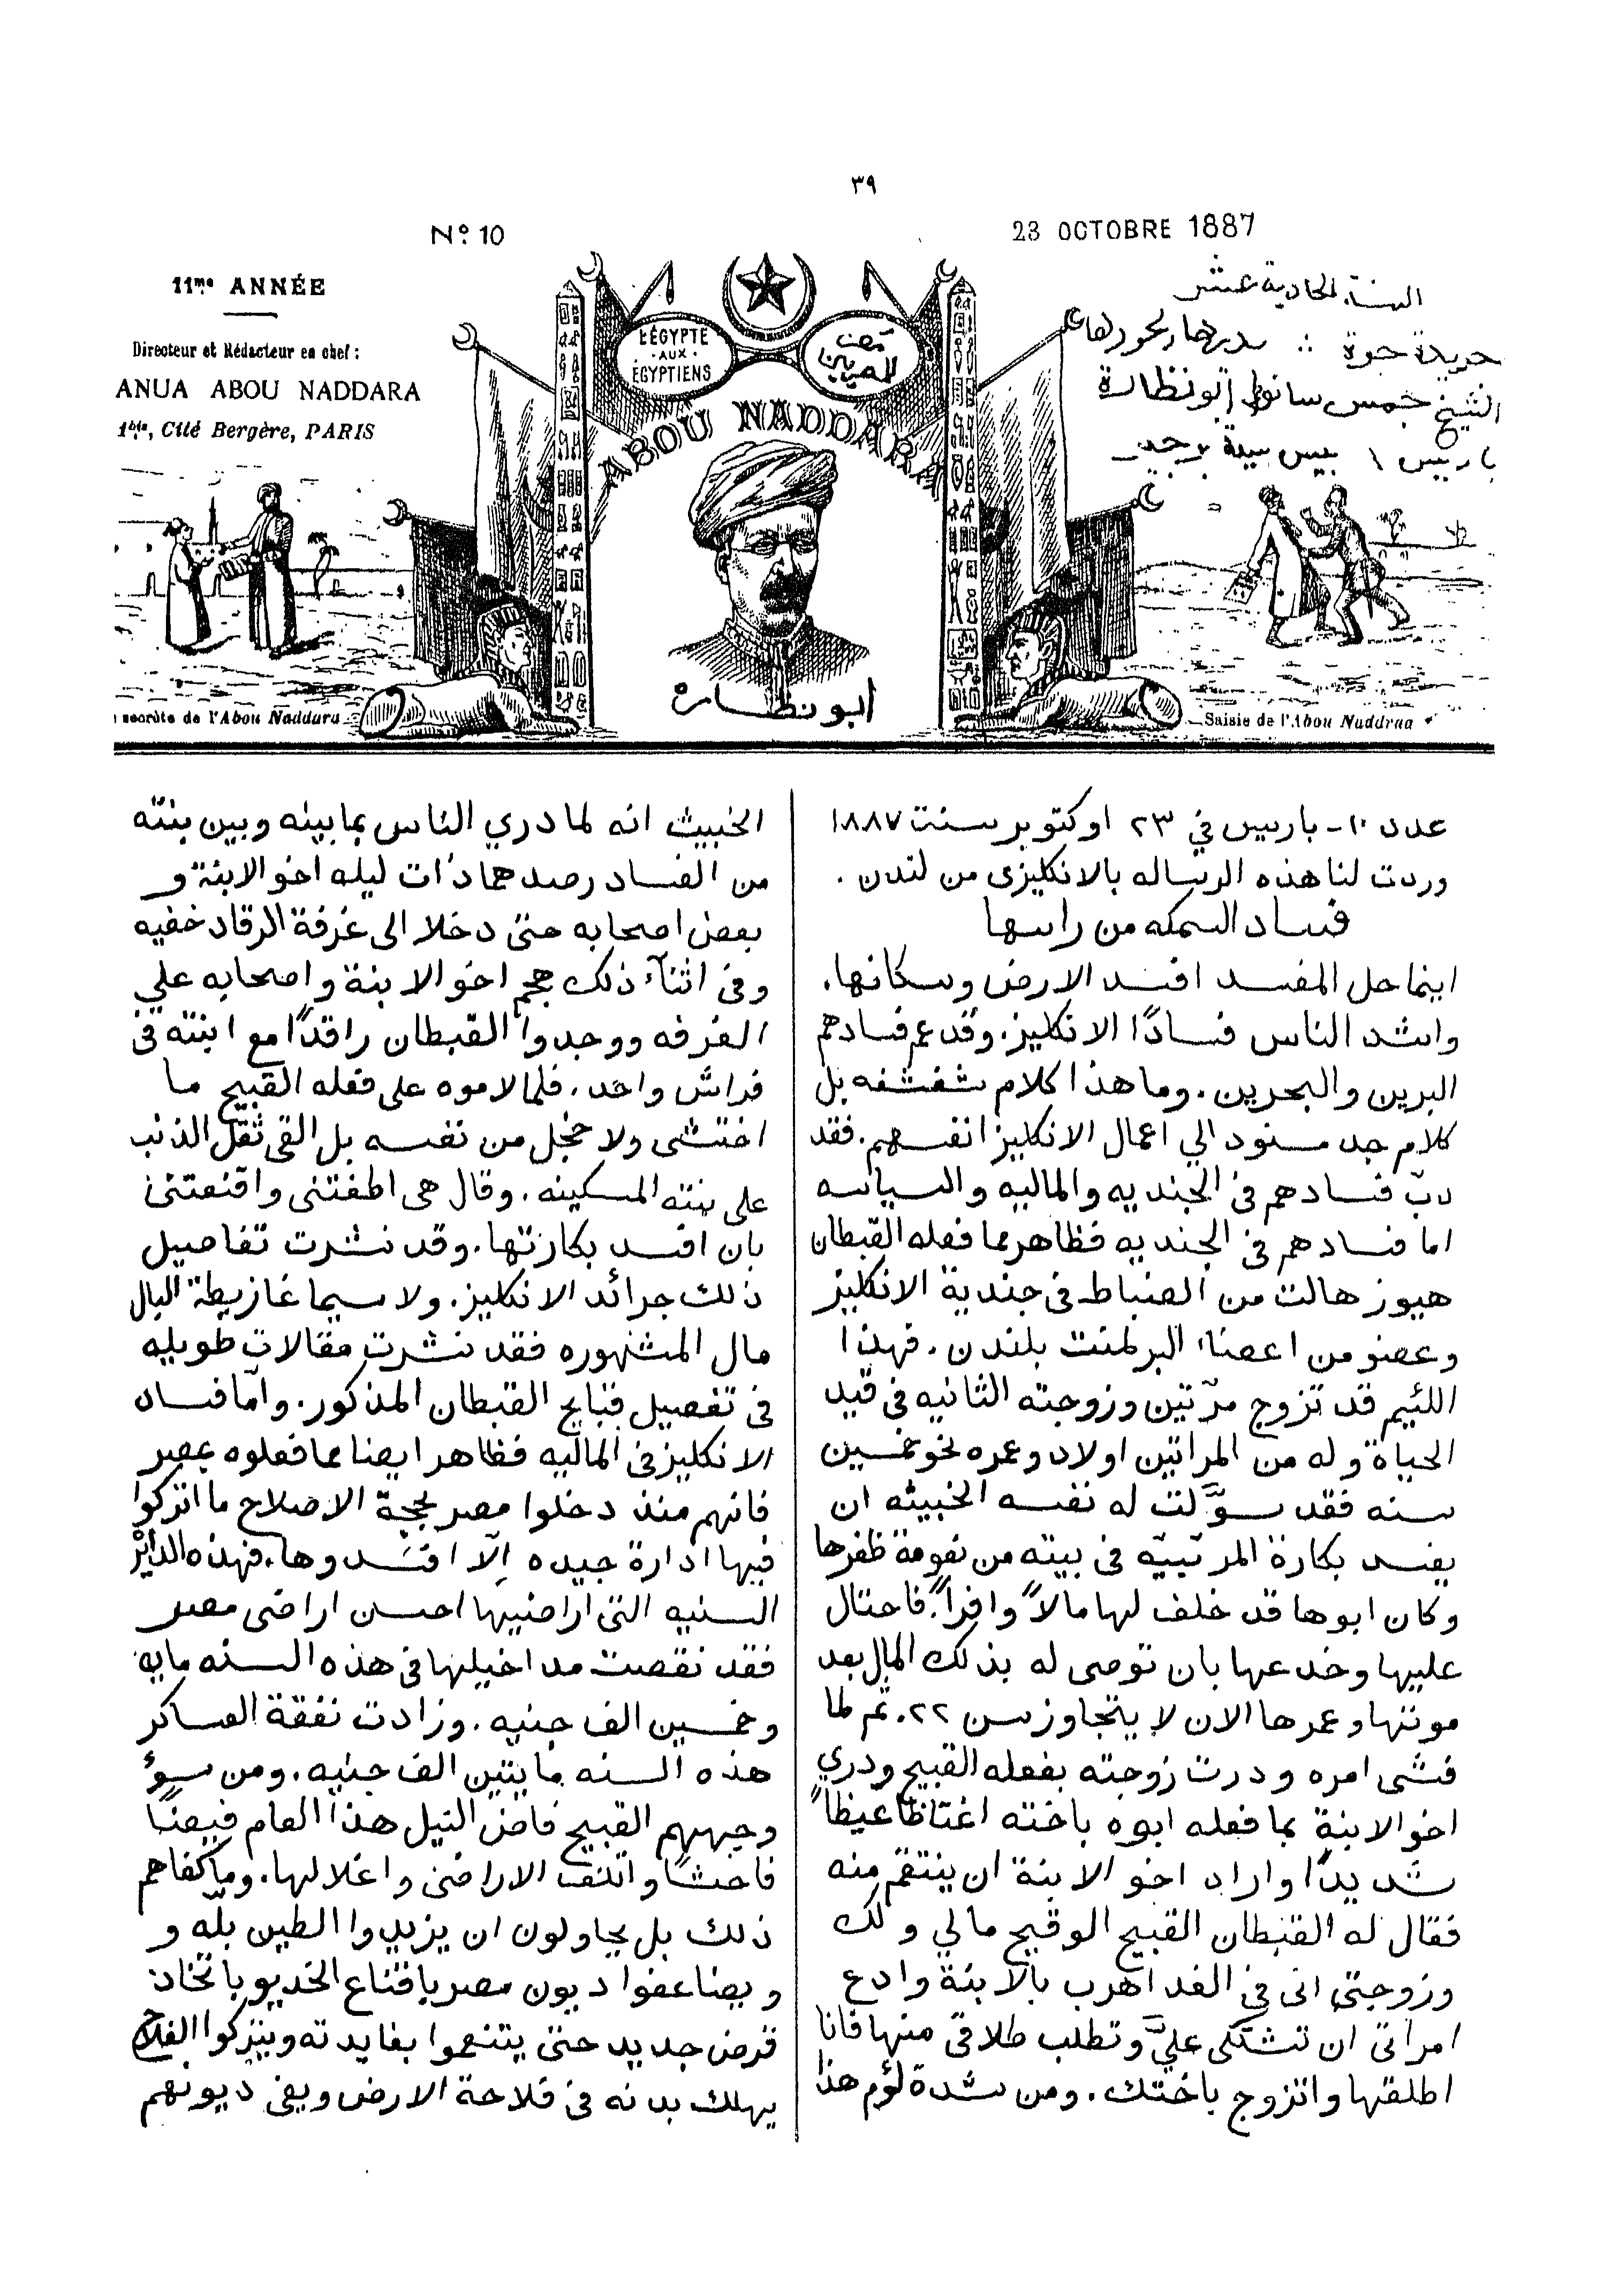 ٣٩
Nº 10
23 OCTOBRE 1887
11me ANNÉE
Directeur et Rédacteur en chef:
ANUA ABOU NADDARA
Cité Bergère, PARIS
L'ÉGYPTE
AUX
ÉGYPTIENS
مصر
للمصريين
ABOU NADDARA
السنة الحادية عشر
جريدة حرة : مديرها ومحررها
الشيخ جمس سانوا ابو نظارة
باريس ١ بيس سيتة برجير
ابو نظاره
secrète de l'Abou Naddara
Saisie de l'Abou Naddraa
عدد ١٠ - باريس في ٢٣ اوكتوبر سنت ١٨٨٧
وردت لنا هذه الرساله بالانكليزى من لندن .
فساد السمكه من راسها
اينما حل المفسد افسد الارض وسكانها.
واشد الناس فسادًا الانكليز. وقد عم فسادهم
البرين والبحرين. وما هذا كلام شفشفه بل
كلام جد مسنود الي اعمال الانكليز انفسهم. فقد
دبّ فسادهم فى الجنديه والماليه والسياسه
اما فسادهم فى الجنديه فظاهر مما فعله القبطان
هيوز هالت من الضباط فى جندية الانكليز
وعضو من اعضاء البرلمنت بلندن. فهذا
اللئيم قد تزوج مرّتين وزوجته الثانيه فى قيد
الحياة وله من المراتين اولاد وعمره نحو خمسين
سنه فقد سوّلت له نفسه الخبيثه ان
يفسد بكارة المربيّه فى بيته من نعومة ظفرها
وكان ابوها قد خلف لها مالاً وافراً. فاحتال
عليها وخدعها بان توصى له بذلك المال بعد
موتها وعمرها الان لا يتجاوز سن ٢٢. ثم لما
فشى امره ودرت زوجته بفعله القبيح ودري
اخو الابنة بما فعله ابوه باخته اغتاظا غيظاً
شديدًا واراد اخو الابنة ان ينتقم منه
فقال له القبطان القبيح الوقيح مالي ولك
وزوجتي انى في الغد اهرب بالابنة وادع
امراتى ان تشتكى عليّ وتطلب طلاقى منها فانا
اطلقها واتزوج باختك. ومن شدة لؤم هذا
الخبيث انه لما دري الناس بما بينه وبين بنته
من الفساد رصدهما ذات ليله اخو الابنة و
بعض اصحابه حتى دخلا الى غرفة الرقاد خفيه
وفى اثنآء ذلك هجم اخو الابنة واصحابه علي
الغرفه ووجدوا القبطان راقدًا مع ابنته فى
فراش واحد. فلما لاموه على فعله القبيح ما
اختشى ولا خجل من نفسه بل القى ثقل الذنب
على بنته المسكينه. وقال هى اطغتنى واقنعتنى
بان افسد بكارتها. وقد نشرت تفاصيل
ذلك جرائد الانكليز. ولا سيما غازيطة البال
مال المشهوره فقد نشرت مقالات طويله
فى تفصيل قبايح القبطان المذكور. وامّا فساد
الانكليز فى الماليه فظاهر ايضا مما فعلوه بمصر
فانهم منذ دخلوا مصر بحجة الاصلاح ما اتركوا
فيها ادارة جيده الّا افسدوها. فهذه الدائرة
السنيه التى اراضيها احسن اراضى مصر
فقد نقصت مداخيلها فى هذه السنه مايه
وخمسين الف جنيه. وزادت نفقة العساكر
هذه السنه مايتين الف جنيه. ومن سوء
وجههم القبيح فاض النيل هذا العام فيضًا
فاحشًا واتلف الاراضى واغلالها. وما كفاهم
ذلك بل يحاولون ان يزيدوا الطين بلّه و
ويضاعفوا ديون مصر باقناع الخديو باتخاذ
قرض جديد حتى يتنعموا بفايدته ويتركوا الفلاح
يهلك بدنه فى فلاحة الارض ويفى ديونهم